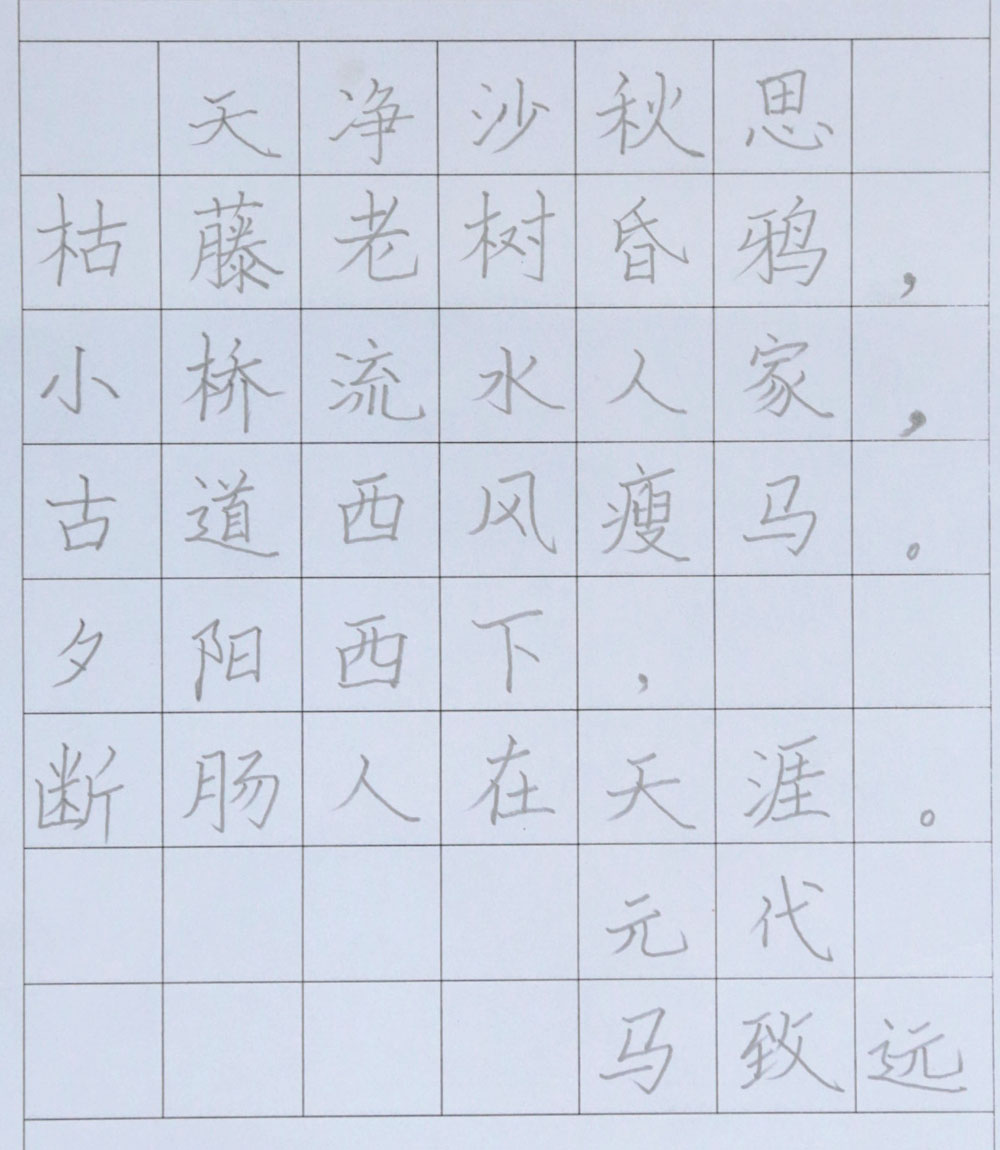 天净沙秋思
枯藤老树昏鸦，
小桥流水人家，
古道西风瘦马。
夕阳西下，
断肠人在天涯。
元代
马致远